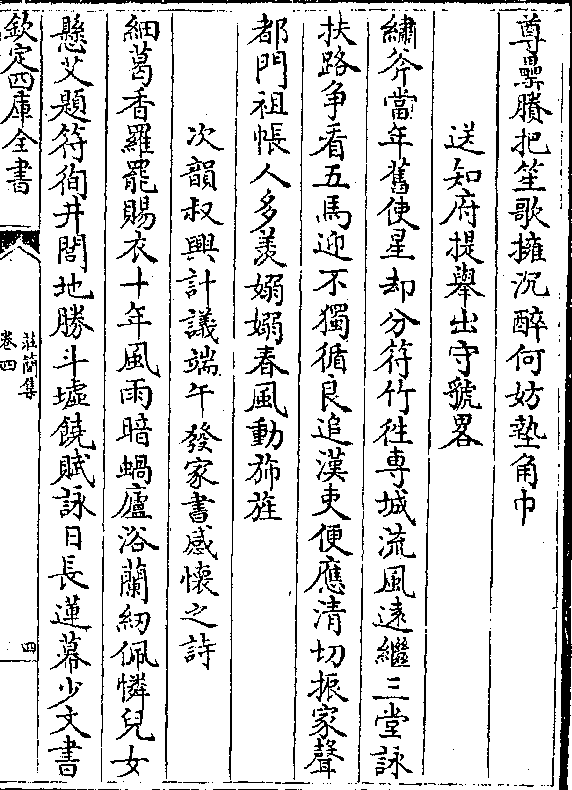 尊罍賸把笙歌擁沉醉何妨墊角巾
送知府提舉出守虢畧
繡斧當年舊使星却分符竹徃專城流風遠繼三堂詠
扶路争看五馬迎不獨循良追漢吏便應清切振家聲
都門祖帳人多羨嫋嫋春風動斾旌
次韻叔興計議端午發家書感懷之詩
細葛香羅罷賜衣十年風雨暗蝸廬浴蘭紉佩憐兒女
懸艾題符徇井閭地勝斗墟饒賦詠日長蓮幕少文書
欽定四庫全書
莊簡集
卷四
四